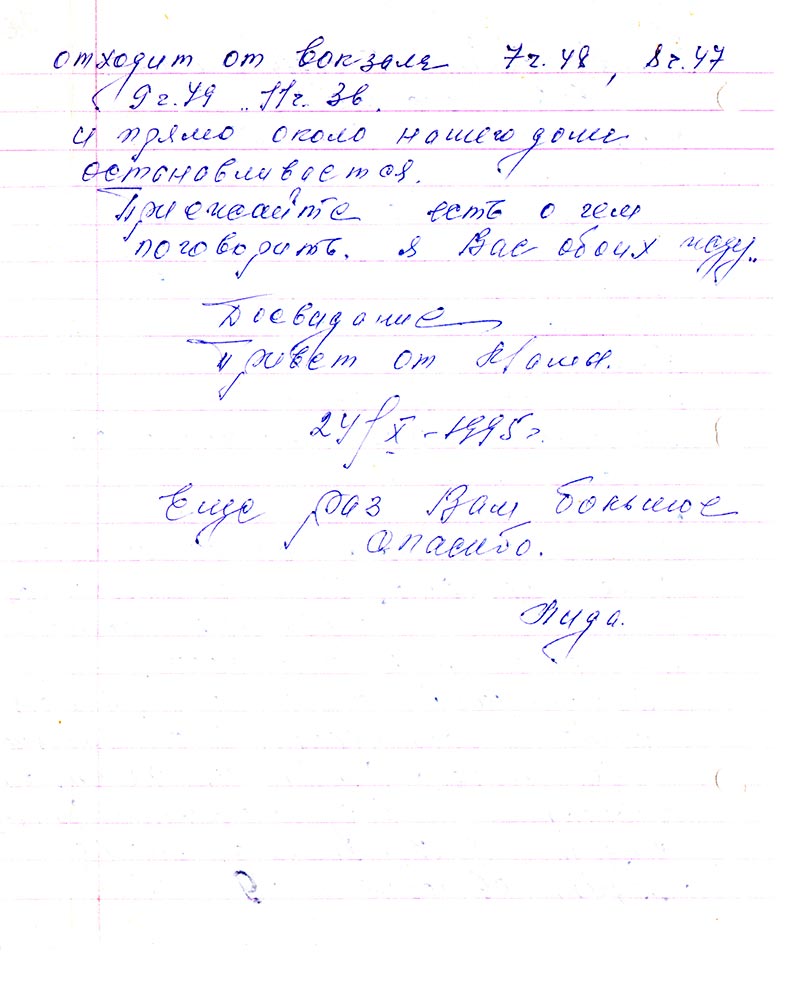 отходит от вокзала 7ч. 48, 8ч. 47
9ч. 49 .. 11ч. 36.
и прямо около нашего дома
останавливается.
Приежайте есть о чем
поговорить. я Вас обоих жду..
Досвидание
Привет от Мамы.
24/X – 1995г.
Еще раз Вам большое
спасибо.
Лида.